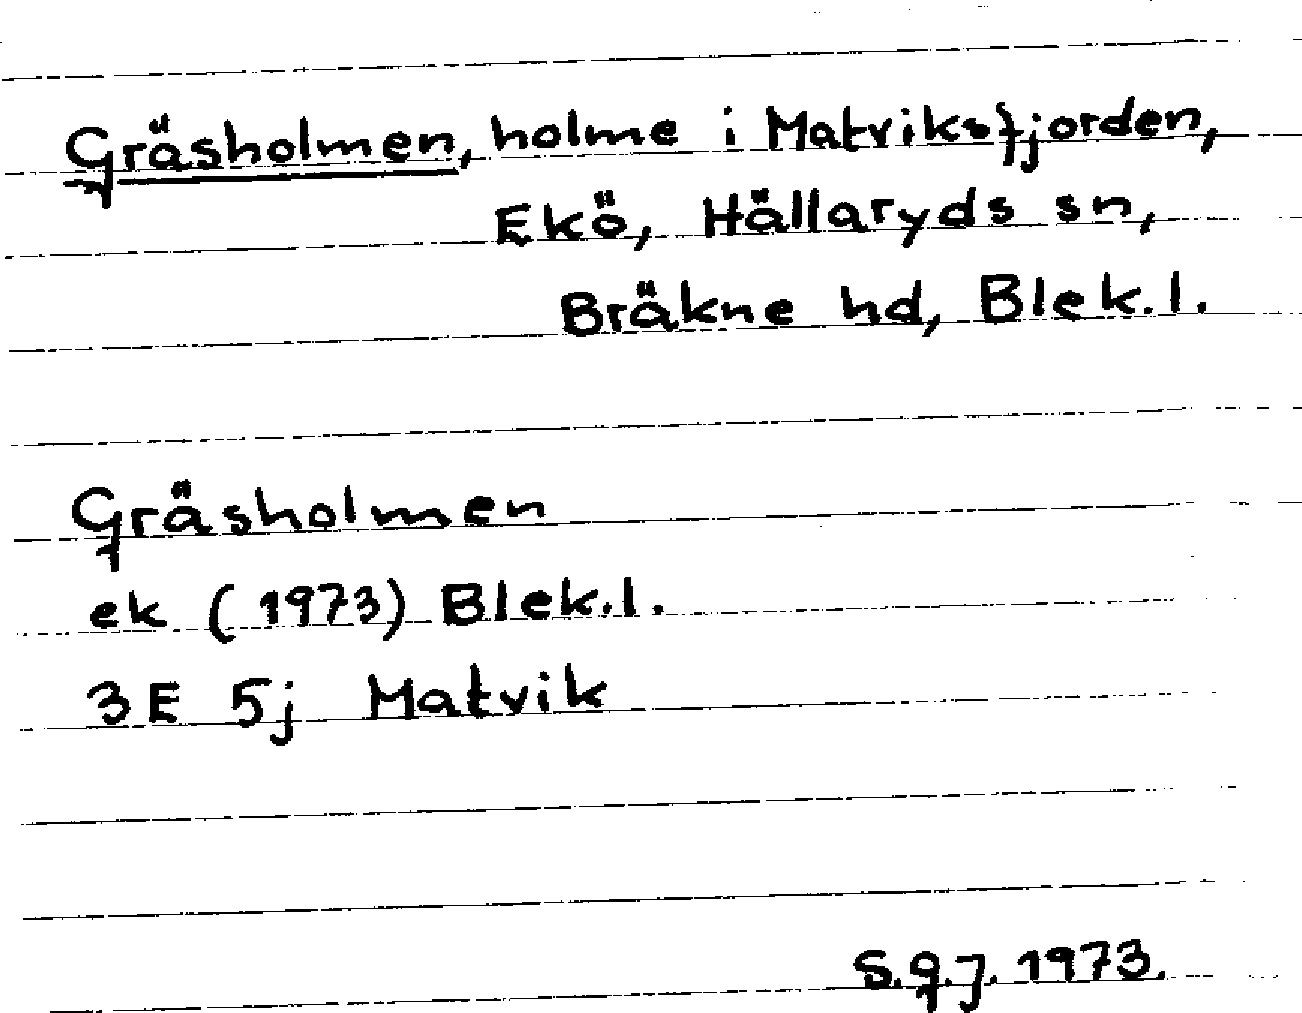 Gräsholmen, holme i Matviksfjorden,
Ekö, Hällaryds sn,
Bräkne hd, Blek.l.
Gräsholmen
ek (1973) Blek.l.
3E 5j Matvik
S.g.J. 1973.